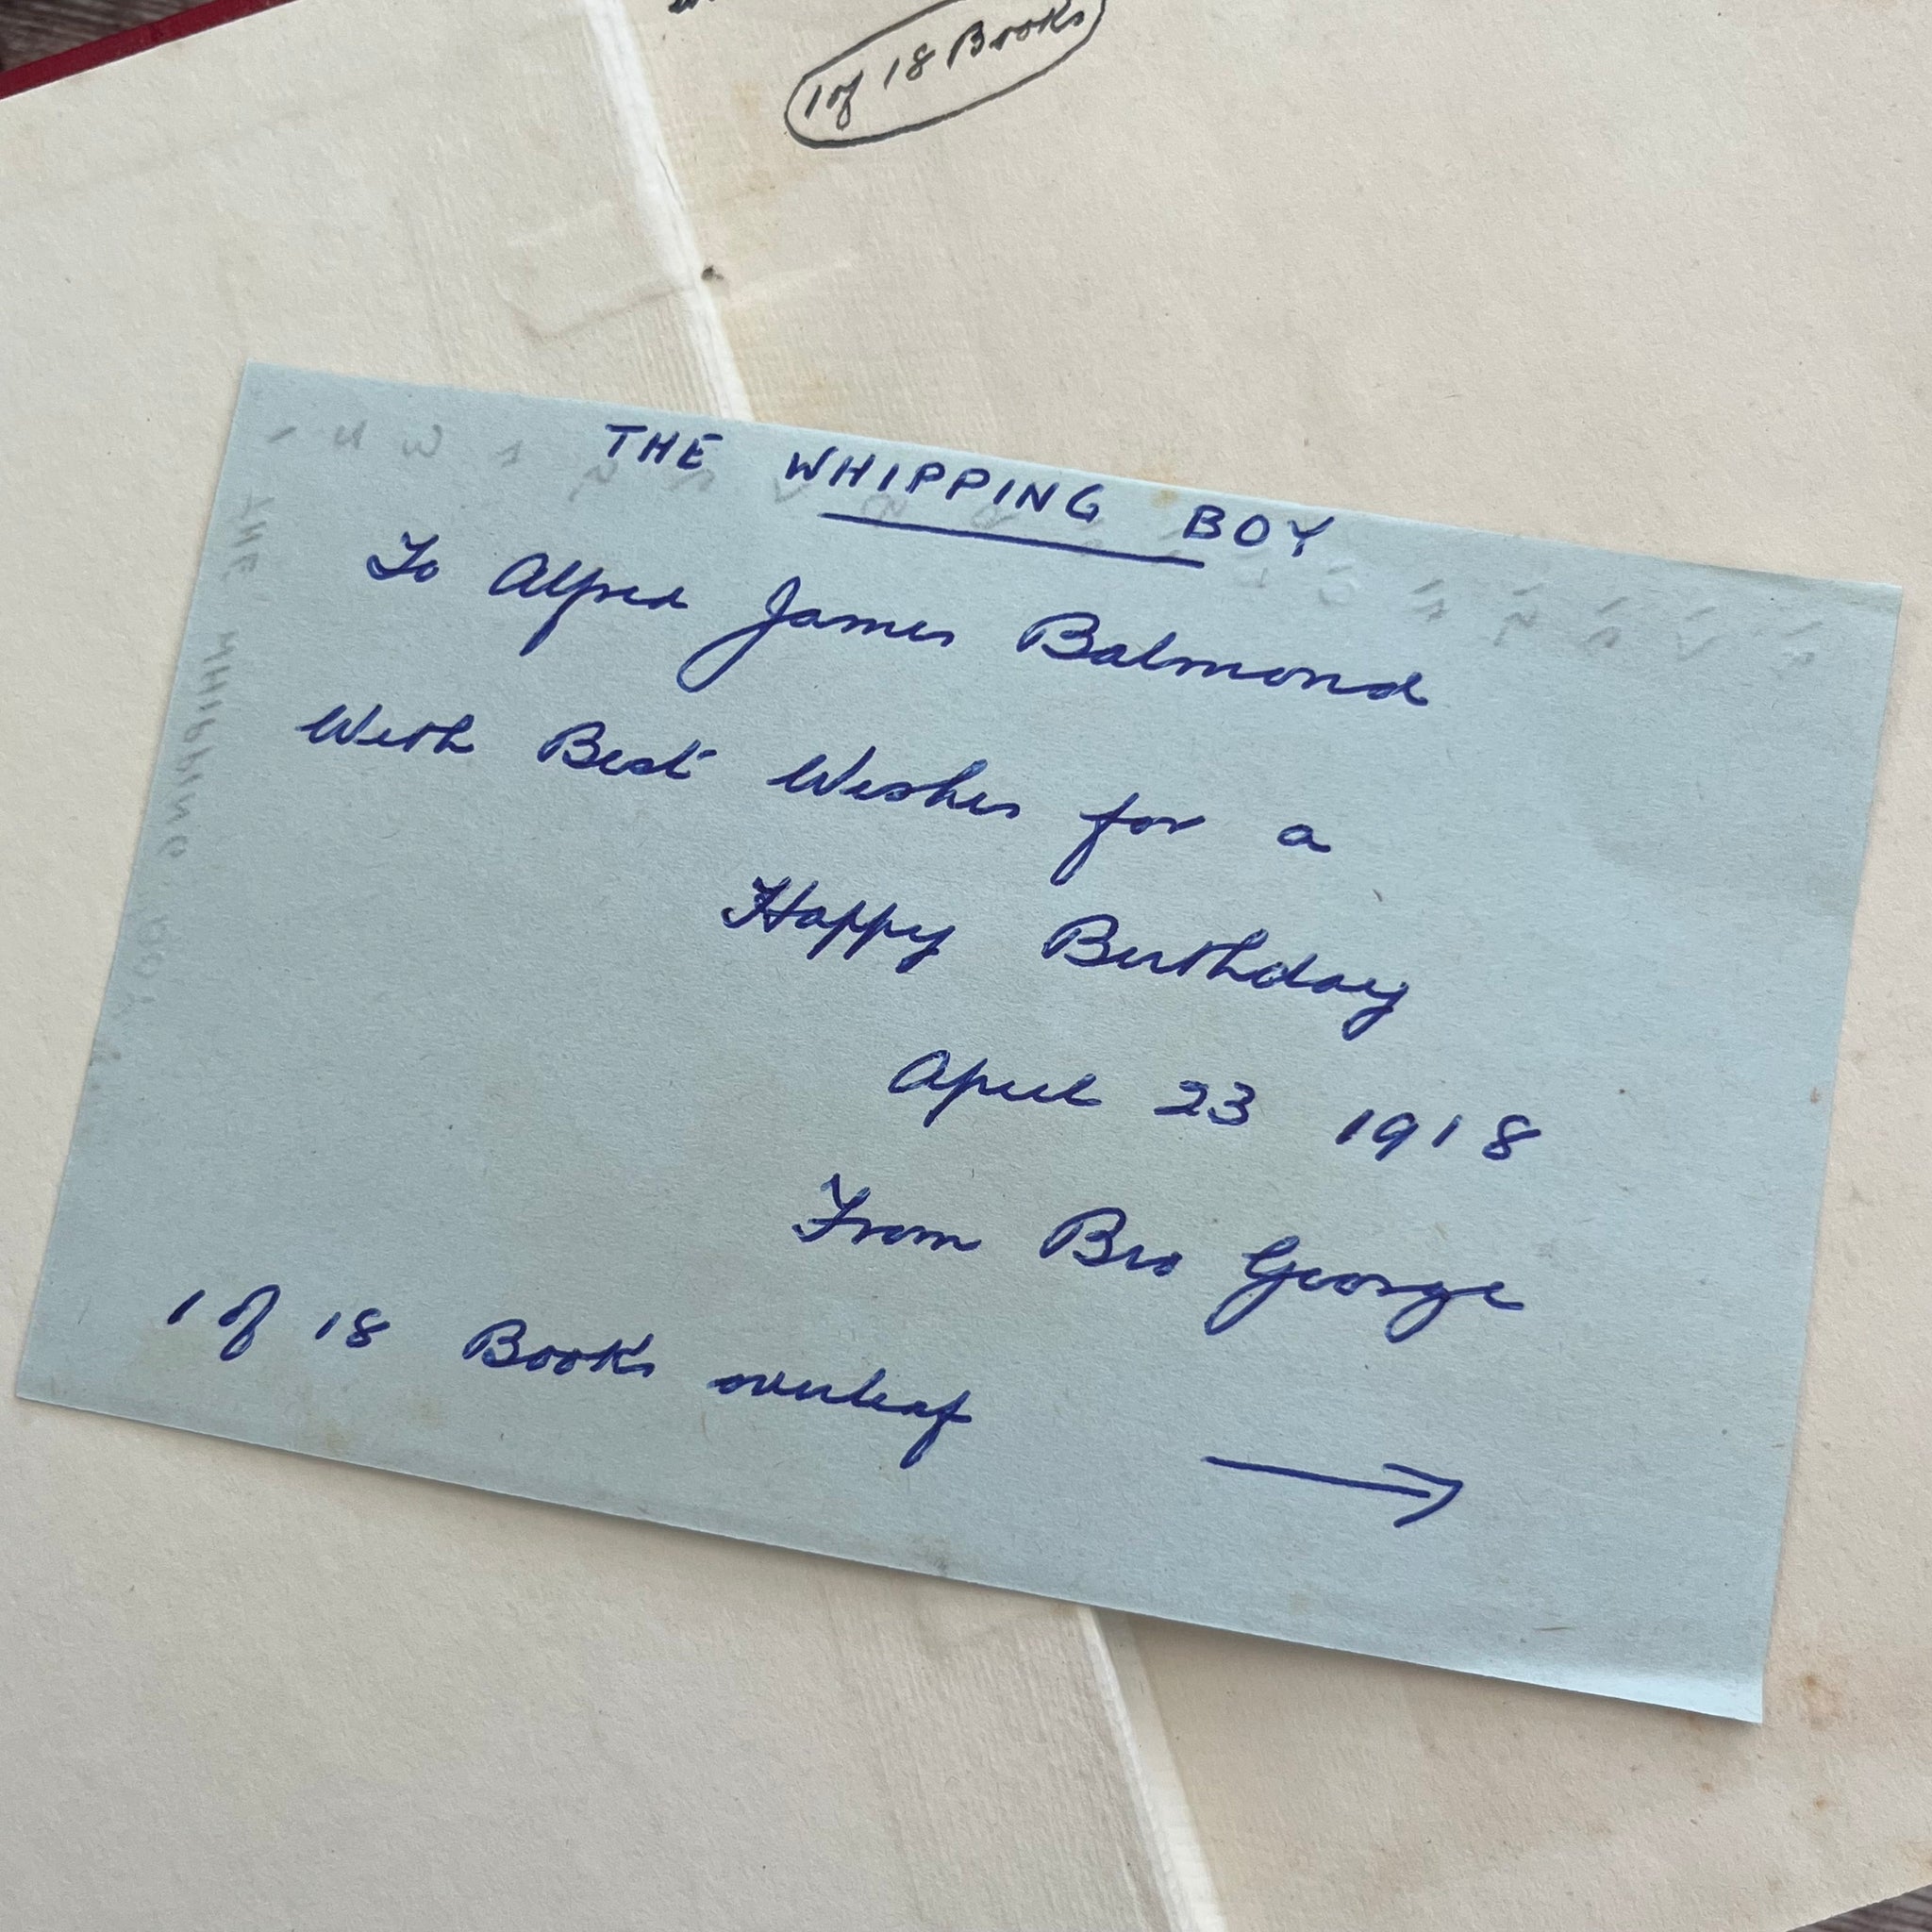 1 of 18 Books
THE WHIPPING BOY
To Alfred James Balmond
With Best Wishes for a
Happy Birthday
April 23 1918
From Bro George
1 of 18 Books overleaf